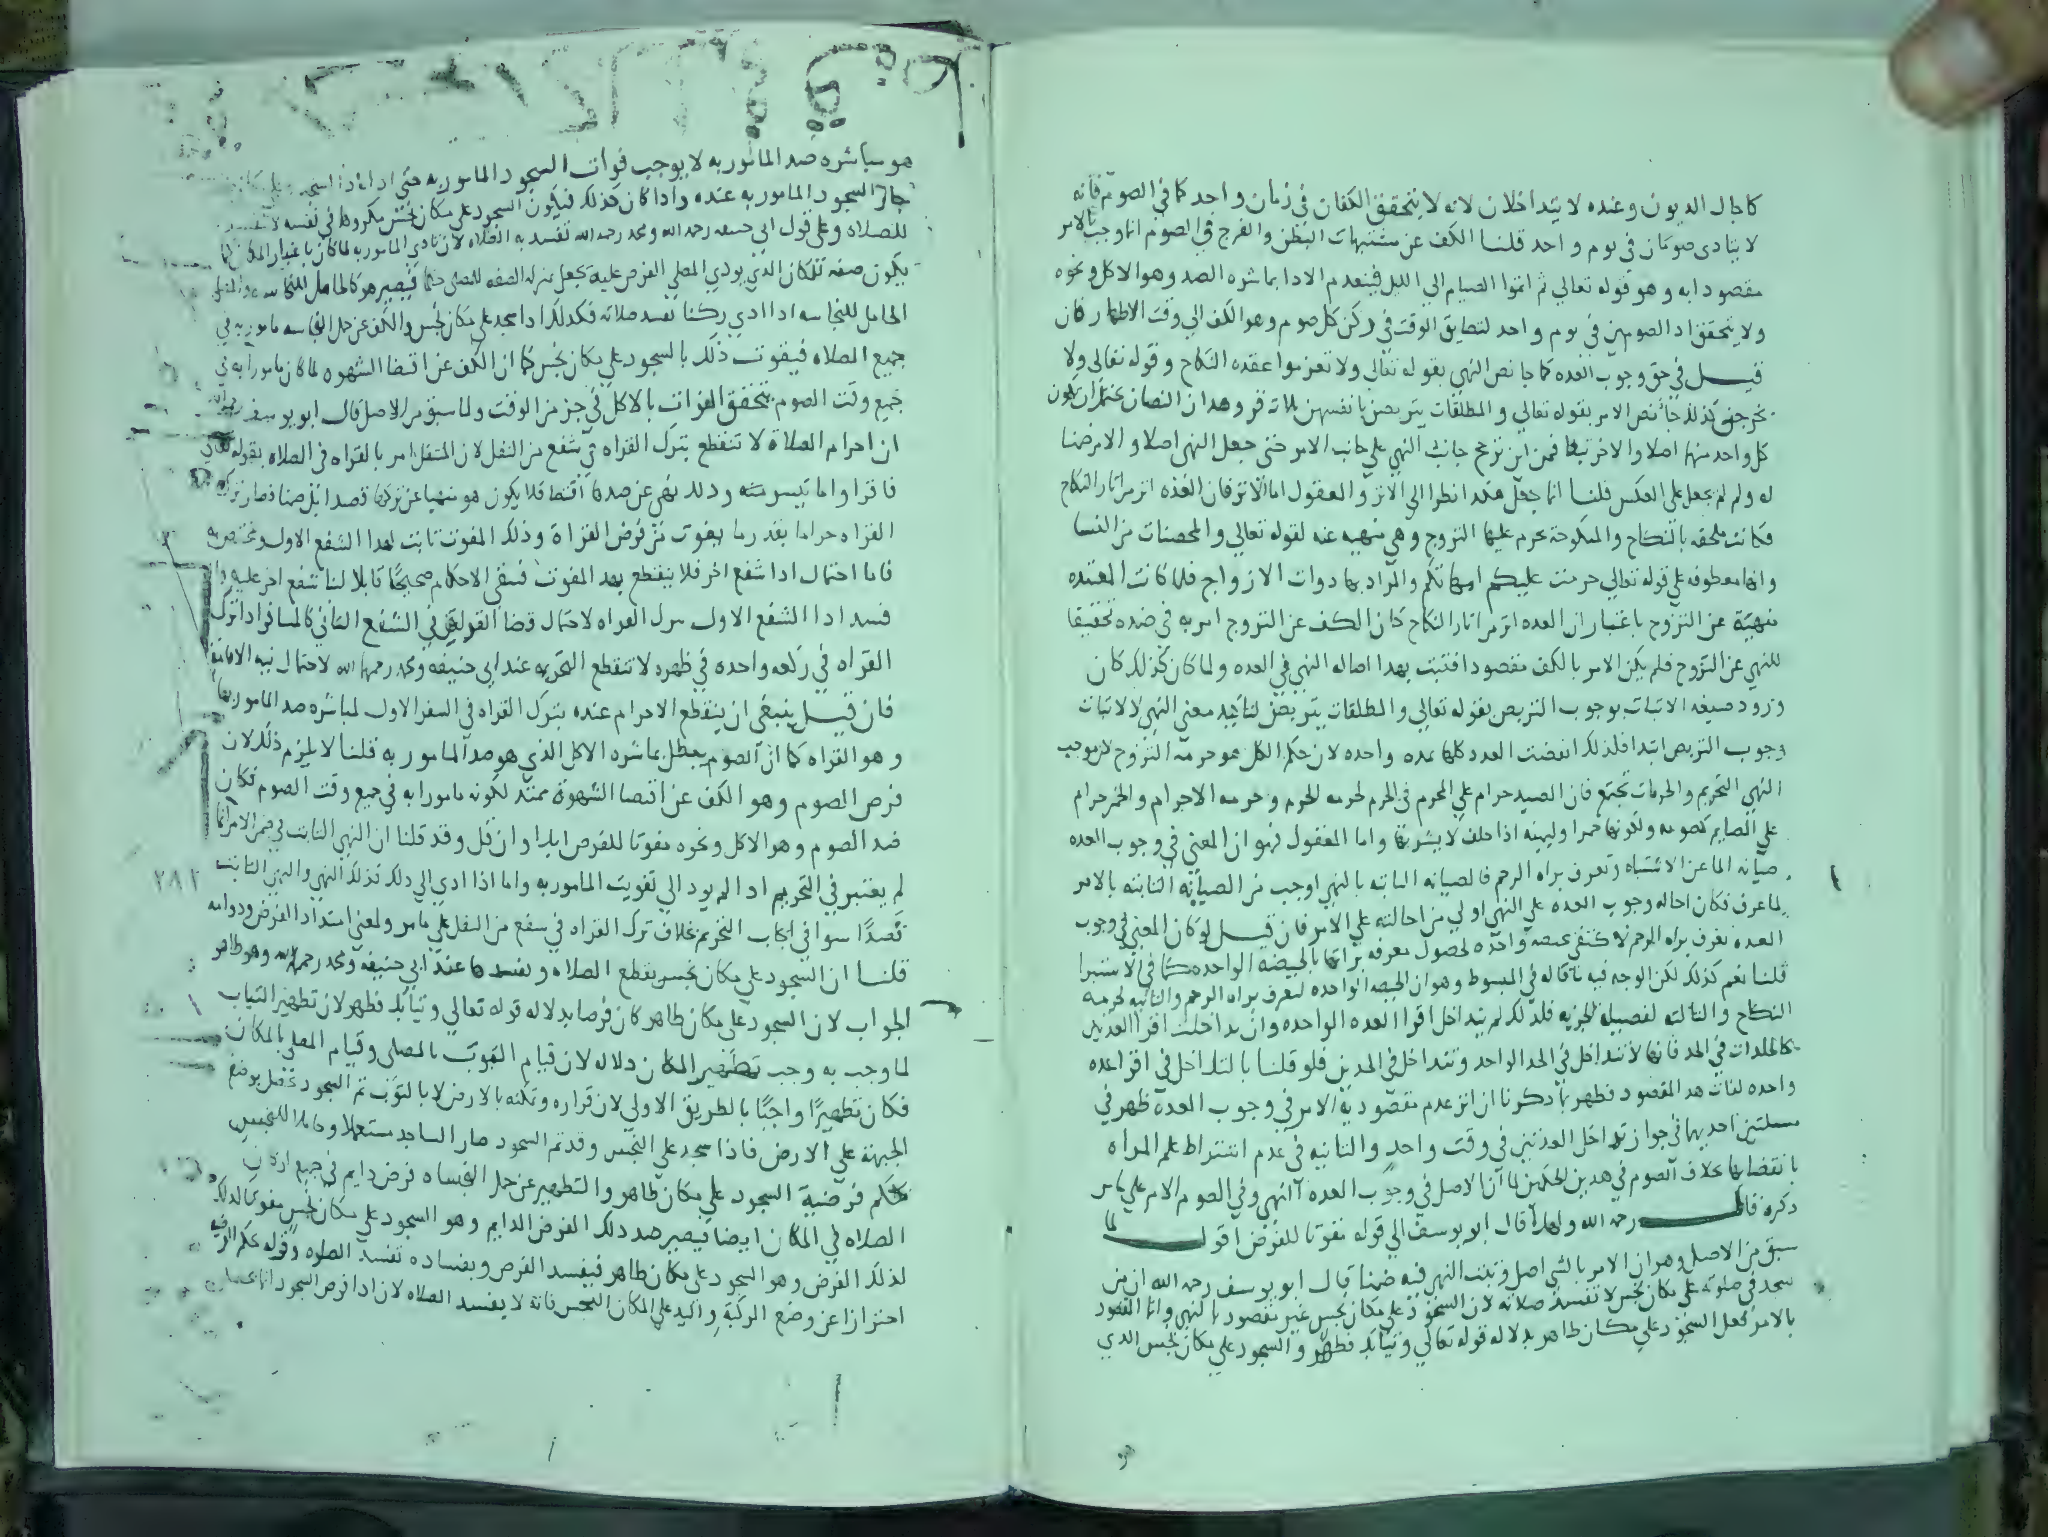 كاجال الديون وعنده لا يتداخلان لانه لا يتحقق الكفان في زمان واحد كما في الصوم فانه
لا يتادى صومان في يوم واحد قلنا الكف عن مشتهيات البطن والفرج في الصوم انما وجب بالامر
مقصودا به وهو قوله تعالى ثم اتموا الصيام الي الليل فينعدم الادا بماشره الضد وهو الاكل ونحوه
ولا يتحقق ادا الصومين في يوم واحد لتضايق الوقت في ركن كل صوم وهو الكف الي وقت الافطار فان
قيل في حق وجوب العده كما جا نص النهي بقوله تعالى ولا تعزموا عقده النكاح وقوله تعالى ولا
يخرجن كذلك جا نص الامر بقوله تعالى والمطلقات يتربصن بانفسهن ثلاثه قرو وهذان النصان
كل واحد منهما اصلا والاخر تبعا فمن اين ترجح جانب النهي على جانب الامر حتى جعل النهي اصلا والامر ضمنا
له ولم لم يجعل على العكس قلنا انما جعل هكذا نظرا الي الاثر والمعقول اما الاثر فان العده اثر من اثار النكاح
فكانت ملحقه بالنكاح والمنكوحه يحرم عليها التزوج وهي منهيه عنه لقوله تعالى والمحصنات من النسا
وانها معطوفه على قوله تعالى حرمت عليكم امهاتكم والمراد بها دوات الازواج فلما كانت المعتده
منهية عن التزوج باعتبار ان العده اثر من اثار النكاح كان الكف عن التزوج امر به في ضده تحقيقا
للنهي عن التزوج فلم يكن الامر بالكف مقصودا فثبت بهدا اصاله النهي في العده ولما كان كذلك كان
ورود صيغه الاثبات بوجوب التربص بقوله تعالى والمطلقات يتربصن لتاكيد معني النهي لا لاثبات
وجوب التربص ابتدا فلذلك انقضت العدد كلها بمده واحده لان حكم الكل هو حرمة التزوج لان موجب
النهي التحريم والحرمات تجتمع فان الصيد حرام على المحرم في الحرم لحرمه الحرم وحرمه الاحرام والخمر حرام
على الصايم لصومه ولكونها خمرا وليمينه اذا حلف لا يشربها واما المعقول فهو ان المعني في وجوب العده
صيانه الما عن الاشتباه وتعرف براه الرحم فالصيانه الثابته بالنهي اوجب من الصيانه الثابته بالامر
لما عرف فكان احاله وجوب العده على النهي اولي من احالته على الامر فان قيل لو كان المعني في وجوب
العده تعرف براه الرحم لاكتفي بحيضه واحده لحصول معرفه براتها بالحيضه الواحده كما في الاستبرا
قلنا نعم كذلك لكن الوجه فيه ما قاله في المبسوط وهو ان الحيضه الواحده لتعرف براه الرحم والثانيه لحرمه
النكاح والثالثه لفضيله الحريه فلذلك لم يتداخل اقرا العده الواحده وان تداخلت اقرا العدتين
كالجلدات في الحد فانها لا تتداخل في الحد الواحد وتتداخل في الحدين فلو قلنا بالتداخل في اقرا عده
واحده لفات هذا المقصود فظهر بما ذكرنا ان اثر عدم مقصوديه الامر في وجوب العده ظهر في
مسلتين احديهما في جواز تداخل العدتين في وقت واحد والثانيه في عدم اشتراط علم المراه
بانقضائها بخلاف الصوم في هذين الحكمين لما ان الاصل في وجوب العده النهي وفي الصوم الامر على ما مر
ذكره قال رحمه الله ولهذا قال ابو يوسف الي قوله مفوتا للفرض اقول لما
سبق من الاصل وهو ان الامر بالشي اصل وثبت النهي فيه ضمنا قال ابو يوسف رحمه الله ان من
سجد في صلوته على مكان نجس لا تفسد صلاته لان السجود على مكان نجس غير مقصود بالنهي وانما المقصود
بالامر فعل السجود على مكان طاهر بدلاله قوله تعالي وثيابك فطهر والسجود على مكان نجس الذي
هو مباشره ضد المامور به لا يوجب فوات السجود المامور به حتى اذا اعاد السجود على مكان
جاز السجود المامور به عنده واذا كان كذلك فيكون السجود على مكان نجس مكروها في نفسه لا
للصلاه وعلى قول ابي حنيفه رحمه الله ومحمد رحمه الله تفسد به الصلاه لان تادي المامور به لما كان باعتبار المكان
يكون صفه للمكان الذي يودي المصلي الفرض عليه يجعل بمنزله الصفه للمصلي حكما فيصير هو كالحامل للنجاسه
الحامل للنجاسه اذا ادي ركنا تفسد صلاته فكذلك اذا سجد على مكان نجس والكف عن حمل النجاسه مامور به في
جميع الصلاه فيفوت ذلك بالسجود على مكان نجس كما ان الكف عن اقتضا الشهوه لما كان مامورا به في
جميع وقت الصوم يتحقق الفوات بالاكل في جز من الوقت ولما سبق من الاصل قال ابو يوسف رحمه الله
ان احرام الصلاة لا تنقطع بترك القراه في شفع من النفل لان المتنفل امر بالقراه في الصلاه بقوله تعالي
فاقراوا ما تيسر منه وذلك نهي عن ضدها اقتضا فلا يكون هو منهيا عن تركها قصدا بل ضمنا فصار ترك
القراه حراما بقدر ما يفوت من فرض القراة وذلك المفوت ثابت لهذا الشفع الاول ومختص به
فاما احتمال ادا شفع اخر فلا ينقطع بهد المفوت فبقي الاحكام صحيحا قابلا لنا شفع اخر عليه وان
فسد ادا الشفع الاول بترك القراه لاحتمال قضا القراه في الشفع الثاني كالمسافر اذا ترك
القراه في ركعه واحده في ظهره لا تنقطع التحريمه عند ابي حنيفه ومحمد رحمهما الله لاحتمال نيه الاقامه
فان قيل ينبغي ان ينقطع الاحرام عنده بترك القراه في الشفع الاول لمباشره ضد المامور به
وهو القراه كما ان الصوم يبطل بماشره الاكل الذي هو ضد المامور به قلنا لا يلزم ذلك لان
فرض الصوم وهو الكف عن اقتضا الشهوة ممتد لكونه مامورا به في جميع وقت الصوم فكان
ضد الصوم وهو الاكل ونحوه مفوتا للفرض ابدا وان قل وقد قلنا ان النهي الثابت في ضمن الامر انما
لم يعتبر في التحريم اذ الم يود الي تفويت المامور به واما اذا ادي الي ذلك فذلك النهي والنهي الثابت
٢٨٢
قصدا سوا في ايجاب التحريم بخلاف ترك القراه في شفع من النفل على ما مر ولمعني امتداد الفرض ودوامه
قلنا ان السجود على مكان نجس يقطع الصلاه ويفسدها عند ابي حنيفه ومحمد رحمهما الله وهو ظاهر
الجواب لان السجود على مكان طاهر كان فرضا بدلاله قوله تعالي وثيابك فطهر لان تطهير الثياب
لما وجب به وجب تطهير المكان دلاله لان قيام الثوب بالمصلي وقيام المصلي بالمكان
فكان تطهيرا واجبا بالطريق الاولي لان قراره وتمكنه بالارض لا بالثوب ثم السجود يحصل بوضع
الجبهة على الارض فاذا سجد على النجس وقد تم السجود صار الساجد مستعملا وحاملا للنجس
بحكم فرضية السجود على مكان طاهر والتطهير عن حمل النجساه فرض دايم في جميع اركان
الصلاه في المكان ايضا فيصير ضد ذلك الفرض الدايم وهو السجود على مكان نجس مفوتا لذلك
لذلك الفرض وهو السجود على مكان طاهر فيفسد الفرض وبفساده تفسد الصلوه وقوله بحكم الفرضيه
احترازا عن وضع الركبة واليد على المكان النجس فانه لا يفسد الصلاه لان ادا فرض السجود